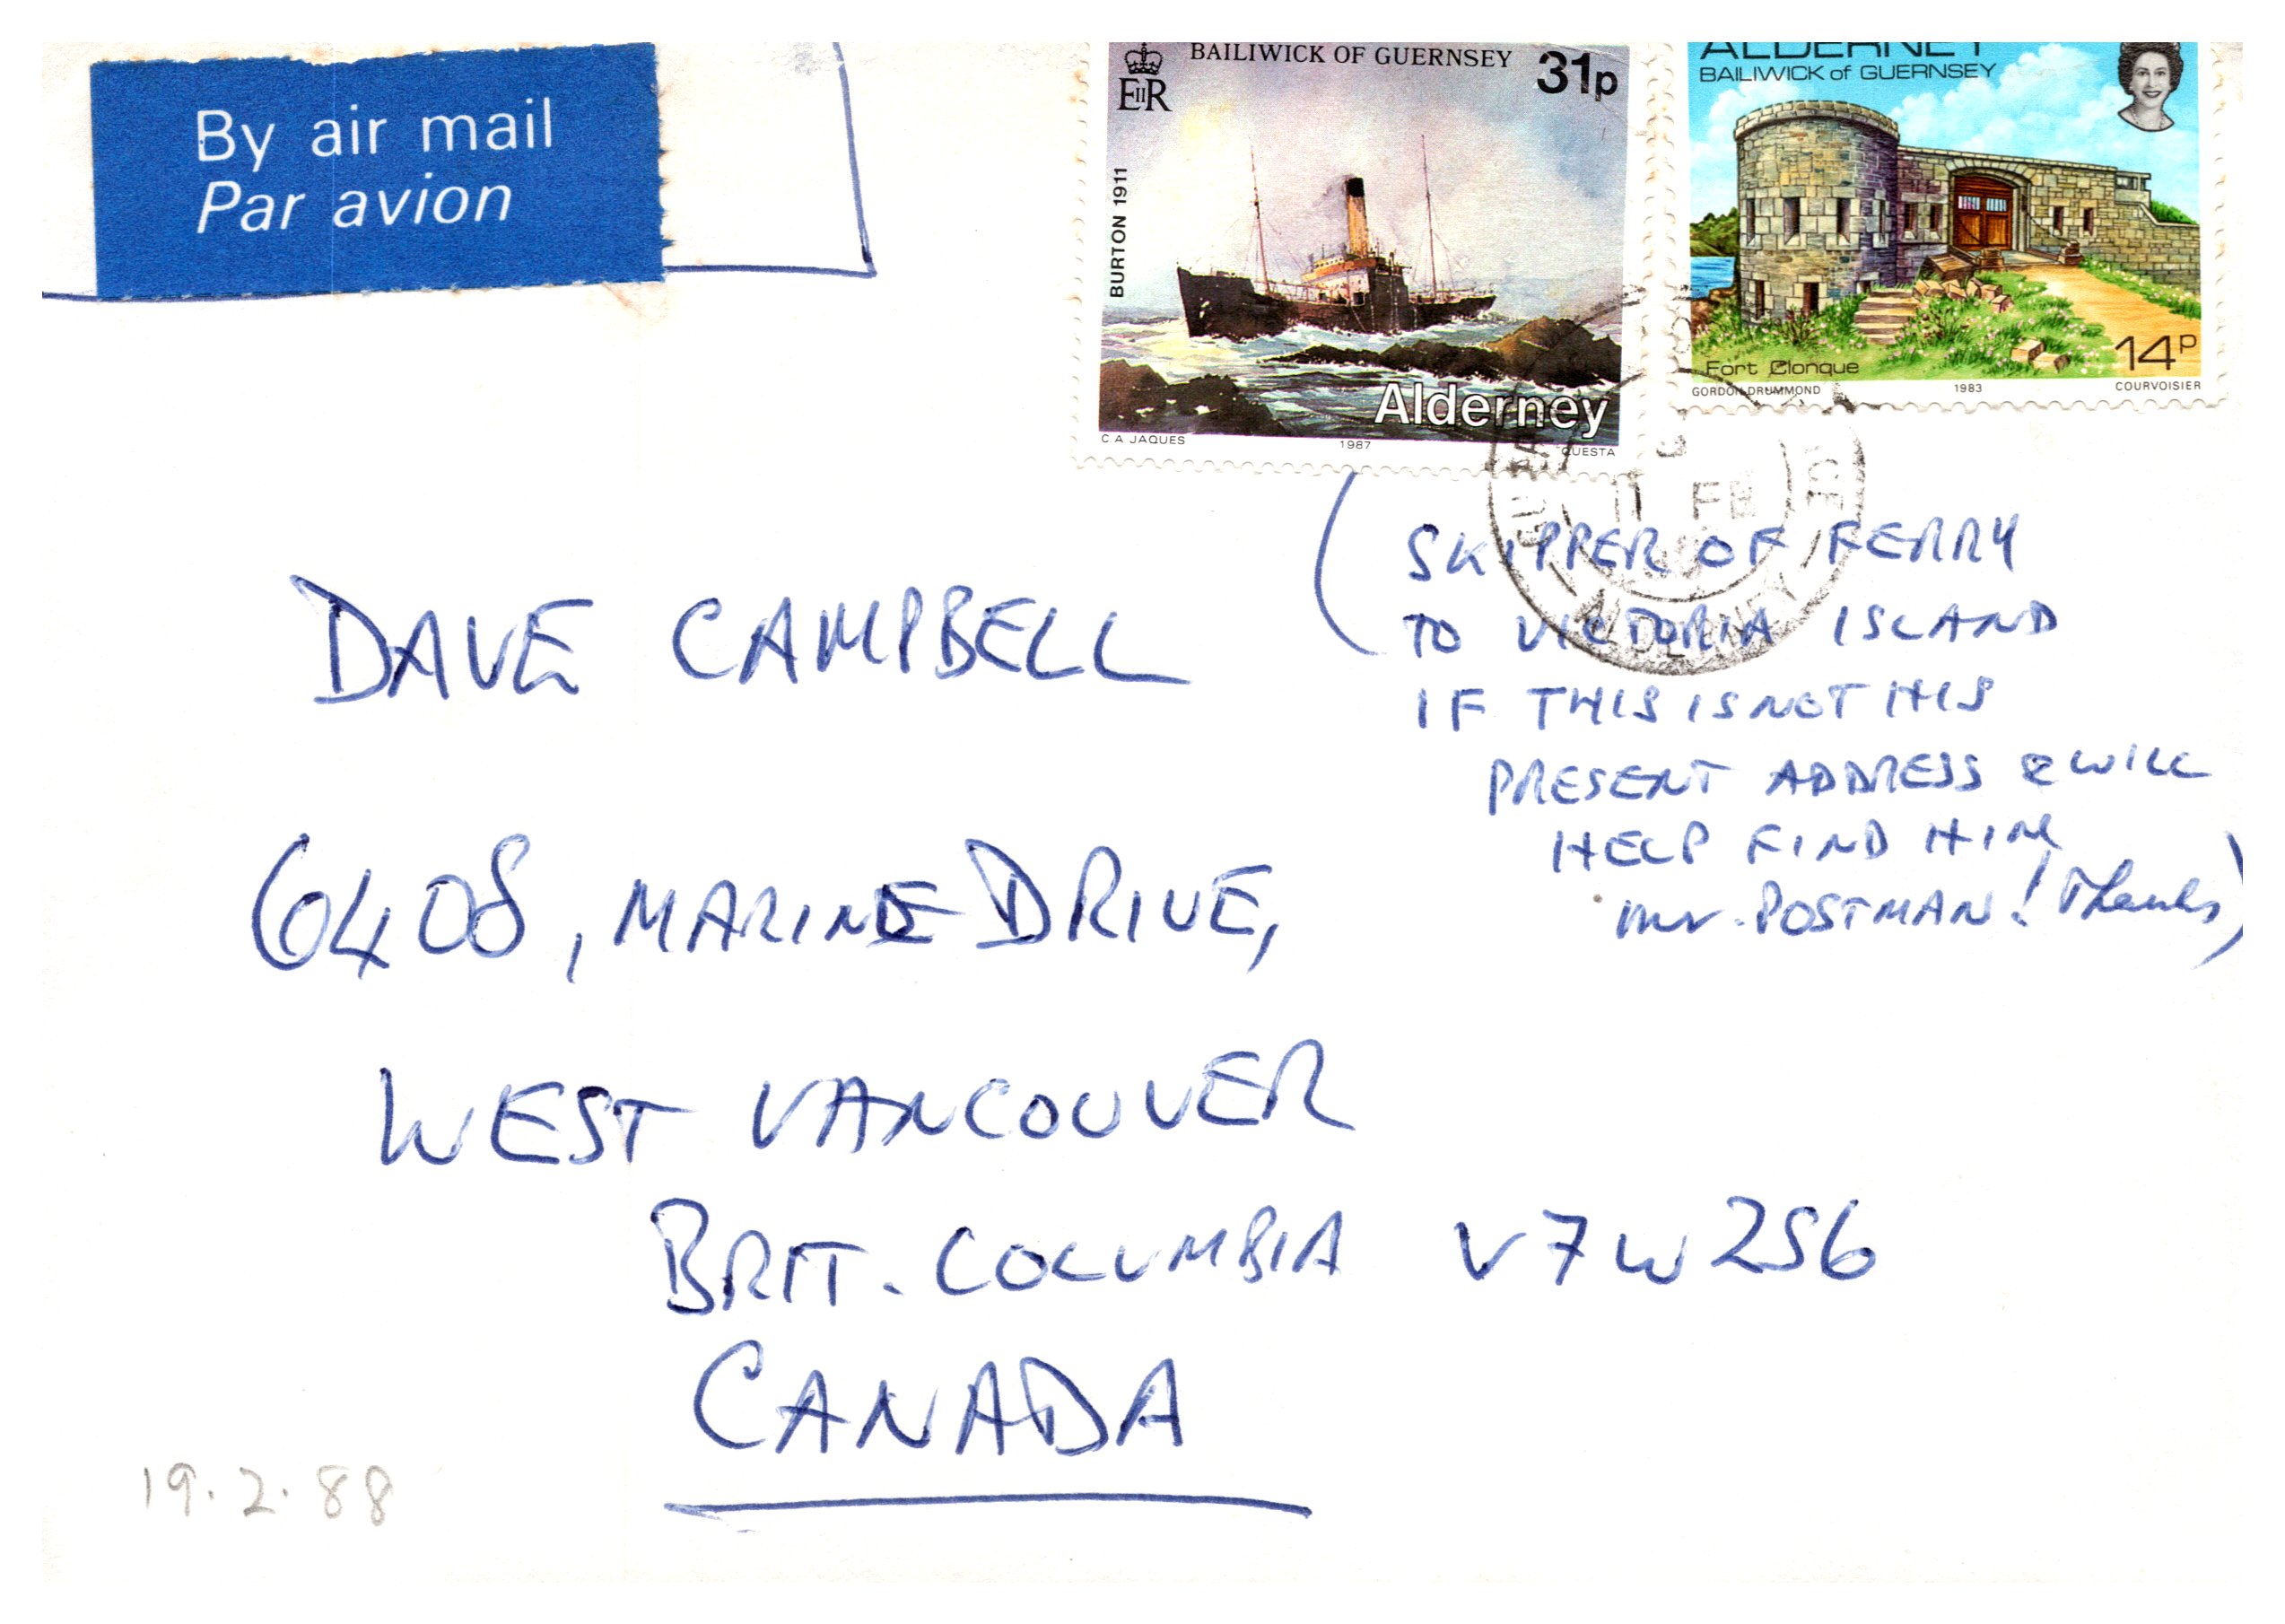 By air mail
Par avion
EIIR
BAILIWICK OF GUERNSEY 31p
BURTON 1911
Alderney
C A JAQUES 1987 QUESTA
ALDERNEY
BAILIWICK of GUERNSEY
Fort Clonque 14P
GORDON DRUMMOND 1983 COURVOISIER
11 FE
ALDERNEY
(SKIPPER OF FERRY
TO VICTORIA ISLAND
IF THIS IS NOT HIS
PRESENT ADDRESS & WILL
HELP FIND HIM
Mr. POSTMAN! Thanks)
DAVE CAMPBELL
6408, MARINE DRIVE,
WEST VANCOUVER
BRIT. COLUMBIA V7W2S6
CANADA
19.2.88